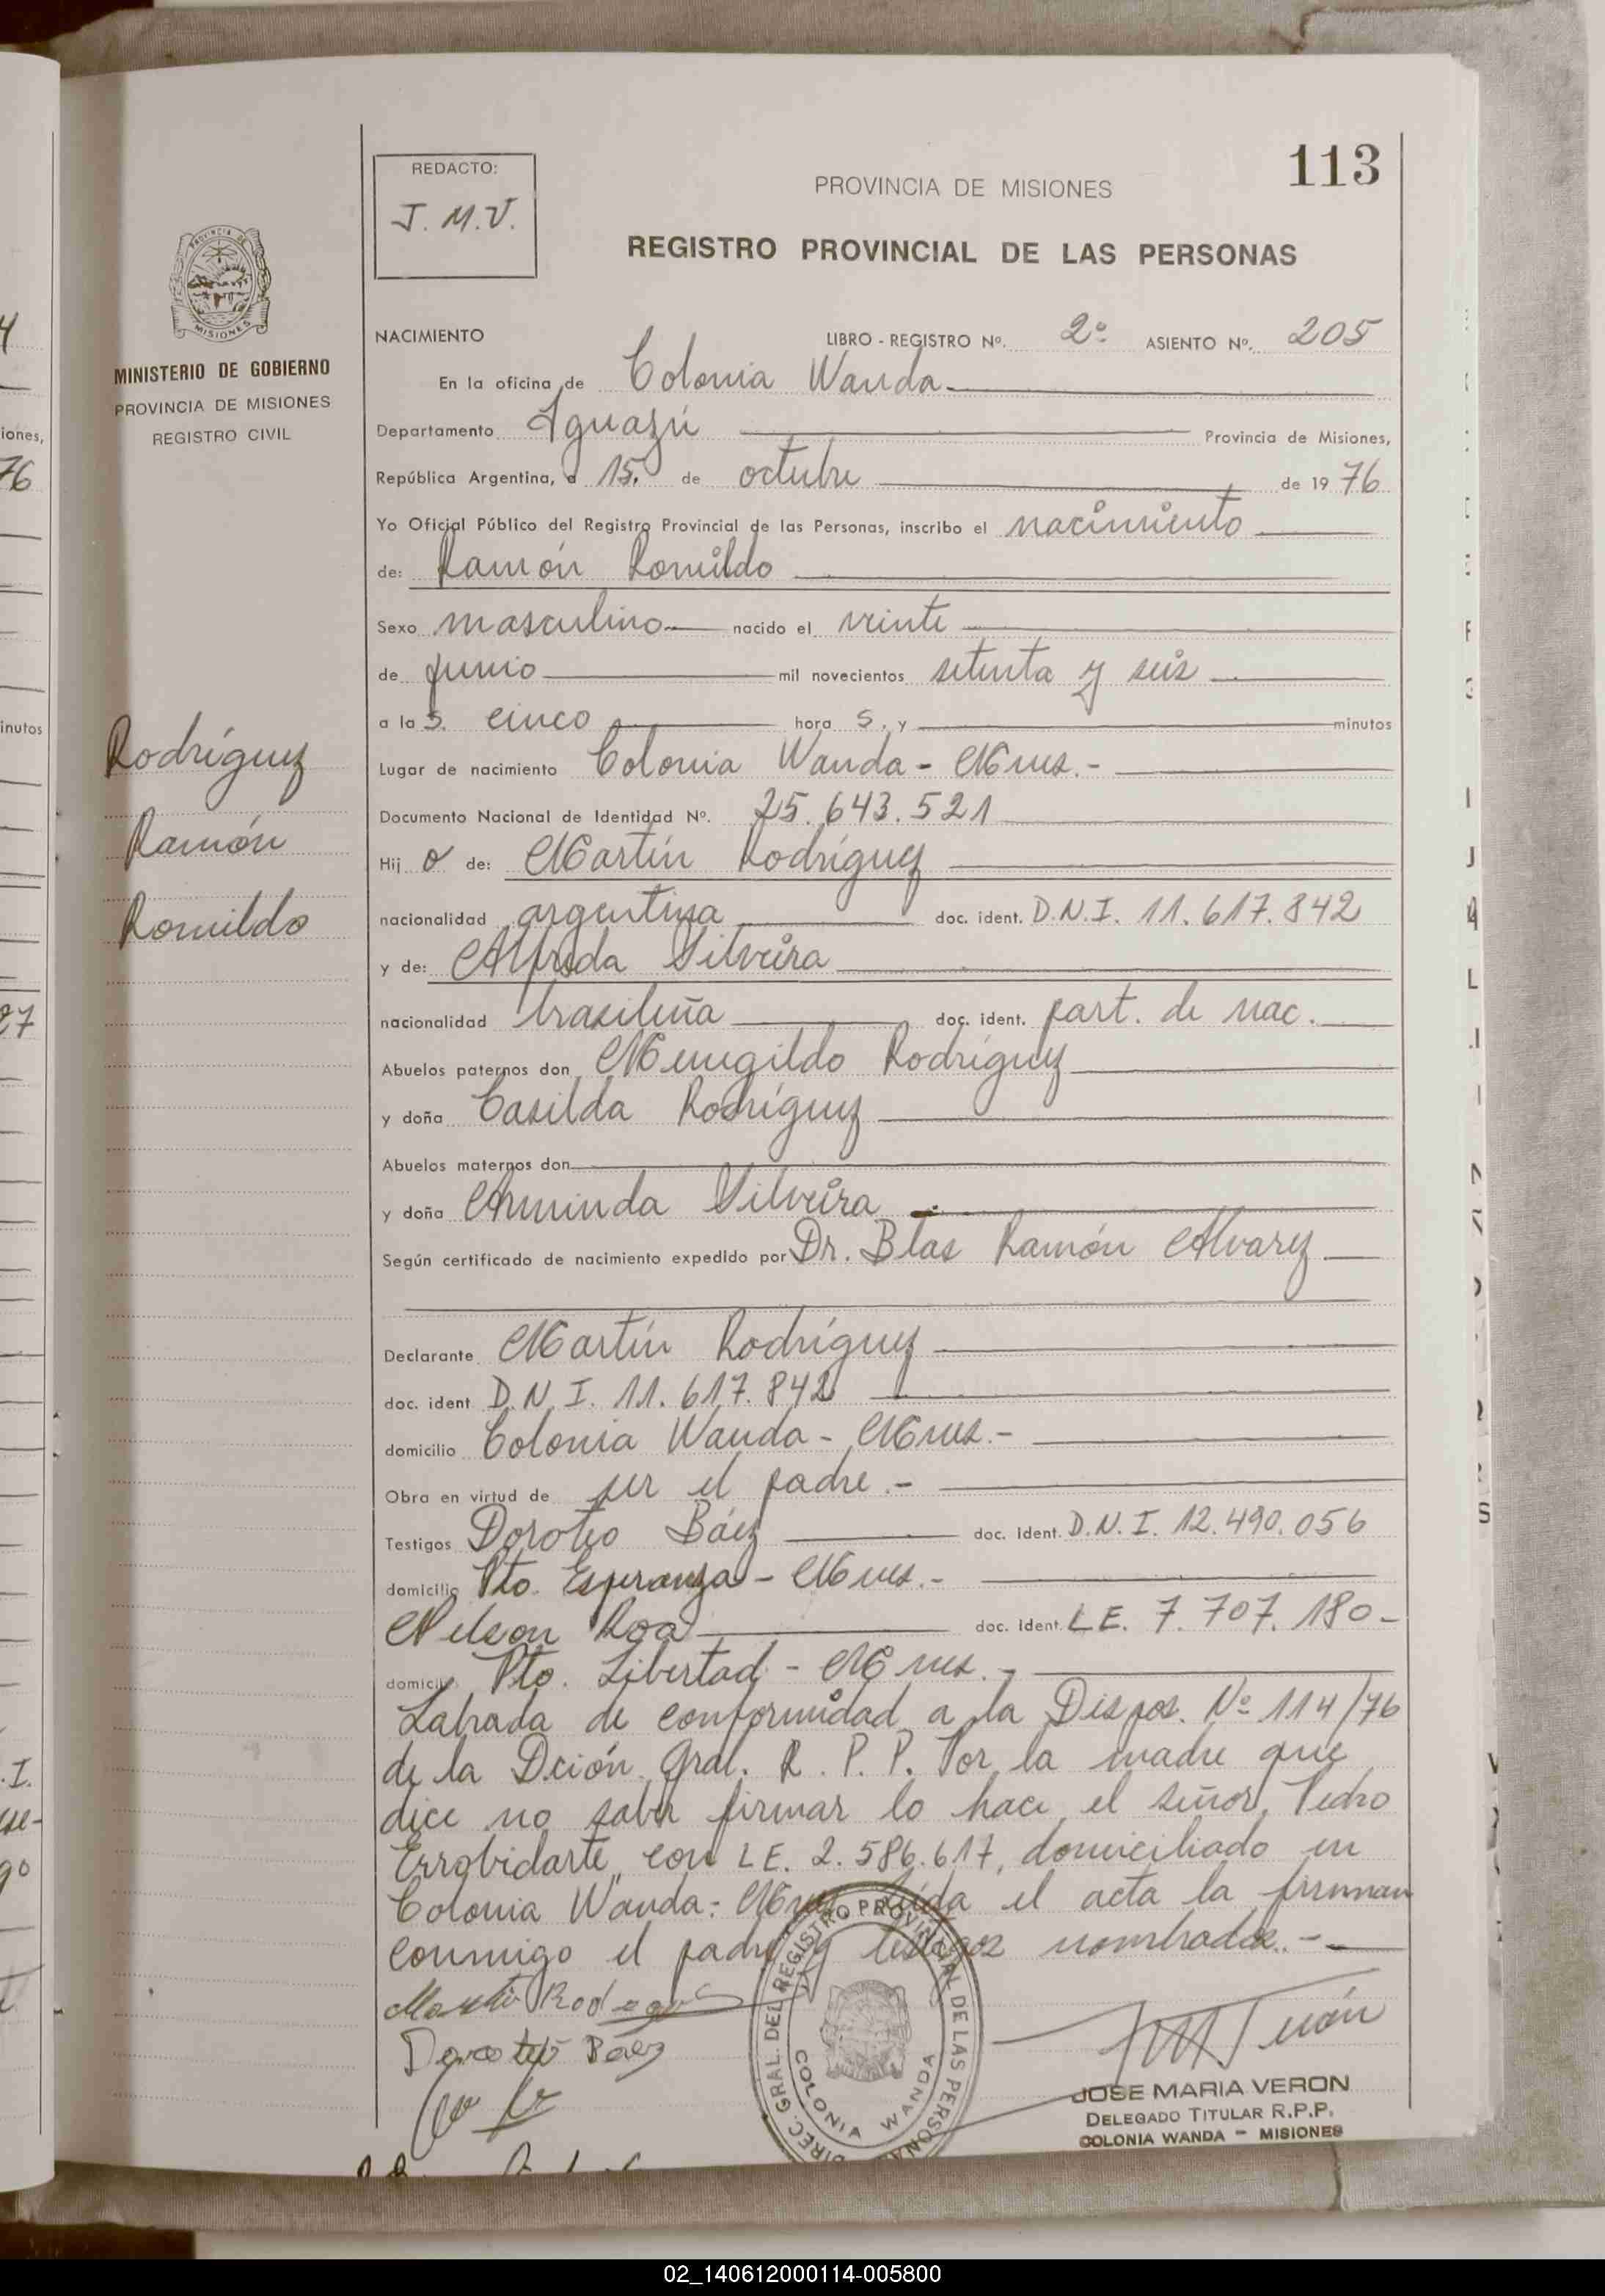 113
REDACTO:
J. M. V.
PROVINCIA DE MISIONES
REGISTRO PROVINCIAL DE LAS PERSONAS
MINISTERIO DE GOBIERNO
PROVINCIA DE MISIONES
REGISTRO CIVIL
Rodríguez
Ramón
Romildo
NACIMIENTO LIBRO - REGISTRO Nº. 2º ASIENTO Nº. 205
En la oficina de Colonia Wanda
Departamento Iguazú Provincia de Misiones,
República Argentina, a 15. de octubre de 19 76
Yo Oficial Público del Registro Provincial de las Personas, inscribo el nacimiento
de: Ramón Romildo
Sexo masculino nacido el veinte
de junio mil novecientos setenta y seis
a la s. cinco hora s. y minutos
Lugar de nacimiento Colonia Wanda - Mnes.-
Documento Nacional de Identidad Nº. 25.643.521
Hij o de: Martín Rodríguez
nacionalidad argentina doc. ident. D.N.I. 11.617.842
y de: Alfrida Silveira
nacionalidad brasileña doc. ident. part. de nac.
Abuelos paternos don Menegildo Rodríguez
y doña Casilda Rodríguez
Abuelos maternos don
y doña Arminda Silveira
Según certificado de nacimiento expedido por Dr. Blas Ramón Alvarez
Declarante Martín Rodríguez
doc. ident D.N.I. 11.617.842
domicilio Colonia Wanda - Mnes.-
Obra en virtud de ser el padre.-
Testigos Doroteo Báez doc. ident. D.N.I. 12.490.056
domicilio Pto. Esperanza - Mnes.-
Nelson Roa doc. ident. L.E. 7.707.180-
domicilio Pto. Libertad - Mnes.-
Labrada de conformidad a la Dispos. Nº 114/76
de la Dción. Gral. R. P. P. Por la madre que
dice no saber firmar lo hace el señor Pedro
Errobidarte con L.E. 2.586.617, domiciliado en
Colonia Wanda - Mnes. Leída el acta la firman
conmigo el padre y testigos nombrados.-
Martin Rodrigues
Doroteo Báez
DIREC. GRAL. DEL REGISTRO PROVINCIAL DE LAS PERSONAS
COLONIA WANDA
JOSE MARIA VERON
DELEGADO TITULAR R.P.P.
COLONIA WANDA - MISIONES
02_140612000114-005800